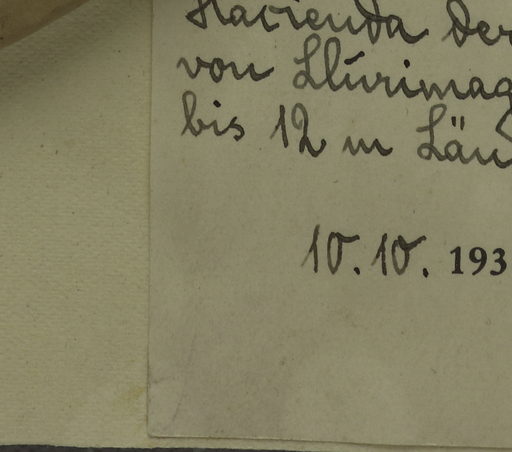 Hacienda der
von Llurimag
bis 12 m Län
10. 10. 193